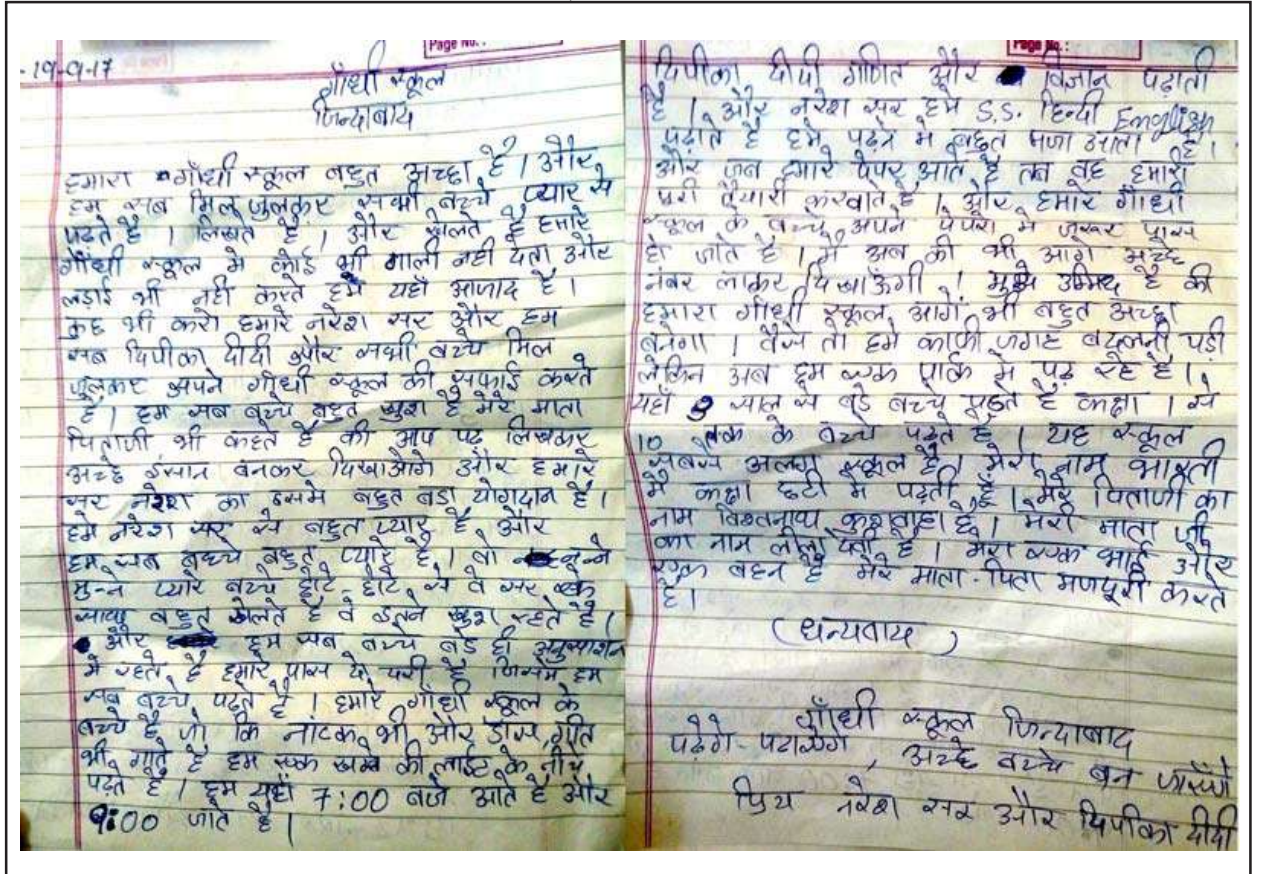 Page No. :
19-9-17
गाँधी स्कूल
जिन्दाबाद
हमारा गाँधी स्कूल बहुत अच्छा है। और
हम सब मिलजुलकर सभी बच्चे प्यार से
पढ़ते है। लिखते है। और खेलते है हमारे
गाँधी स्कूल मे कोई भी गाली नही देता और
लड़ाई भी नही करते हम यहाँ आजाद है।
कुछ भी करो हमारे नरेश सर और हम
सब दिपीका दीदी और सभी बच्चे मिल
जुलकर अपने गाँधी स्कूल की सफाई करते
है। हम सब बच्चे बहुत खुश है मेरे माता
पिताजी भी कहते है की आप पढ़ लिखकर
अच्छे इंसान बनकर दिखाओगे और हमारे
सर नरेश का इसमे बहुत बडा योगदान है।
हमे नरेश सर से बहुत प्यार है और
हम सब बच्चे बहुत प्यारे है। वो नन्ने
मुन्ने प्यारे बच्चे छोटे छोटे से वे सर एक
साथ बहुत खेलते है वे इतने खुश रहते है।
और हम सब बच्चे बडे ही अनुसाशन
मे रहते है हमारे पास दो दरी है जिसमे हम
सब बच्चे पढ़ते है। हमारे गाँधी स्कूल के
बच्चे है जो कि नाटक भी और डांस, गीत
भी गाते है हम एक खम्बे की लाईट के नीचे
पढ़ते है। हम यहाँ 7:00 बजे आते है और
9:00 जाते है।
Page No. :
दिपीका दीदी गणित और विज्ञान पढ़ाती
है। और नरेश सर हमे S.S. हिन्दी English
पढ़ाते है हमे पढ़ने मे बहुत मजा आता है।
और जब हमारे पेपर आते है तब वह हमारी
पुरी तैयारी करवाते है। और हमारे गाँधी
स्कूल के बच्चे अपने पेपरो मे जरूर पास
हो जाते है। मै अब की भी आगे अच्छे
नंबर लाकर दिखाऊँगी। मुझे उम्मिद है की
हमारा गाँधी स्कूल आगे भी बहुत अच्छा
बनेगा। वैसे तो हमे काफी जगह बदलनी पडी
लेकिन अब हम एक पार्क मे पढ़ रहे है।
यहाँ साल से बडे बच्चे पढ़ते है कक्षा 1 से
10 तक के बच्चे पढ़ते है। यह स्कूल
सबसे अलग स्कूल है। मेरा नाम भारती
मै कक्षा छटी मे पढ़ती हूँ। मेरे पिताजी का
नाम विशतनाथ कुशवाहा है। मेरी माता जी
का नाम लीला देवी है। मेरा एक भाई और
एक बहन है मेरे माता-पिता मजदूरी करते
है।
(धन्यवाद)
गाँधी स्कूल जिन्दाबाद
पढ़ेगे-पढ़ाएगे, अच्छे बच्चे बन जाएँगे
प्रिय नरेश सर और दिपीका दीदी